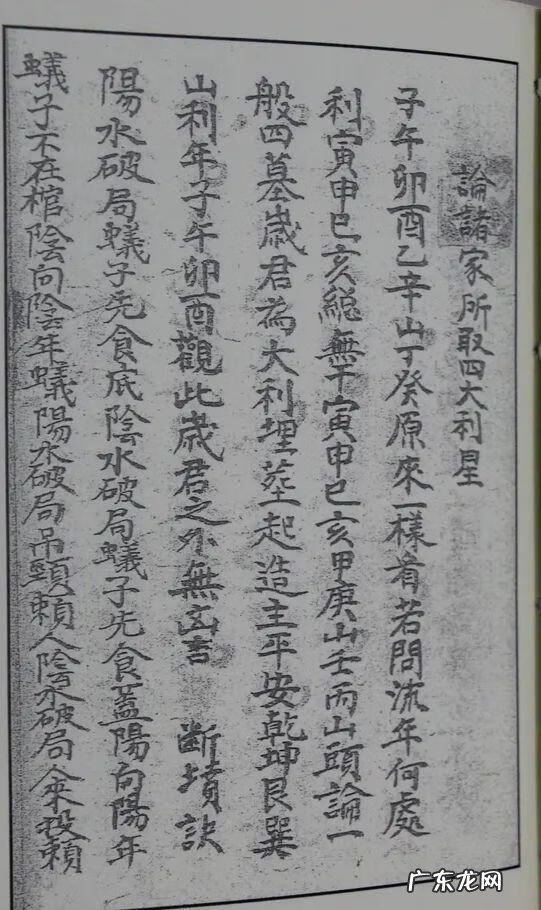 論諸家所取四大利星
子午卯酉乙辛山丁癸原來一樣看若問流年何處
利寅申巳亥總無干寅申巳亥甲庚山壬丙山頭論一
般四墓歲君為大利埋塟起造主平安乾坤艮巽
山利年子午卯酉觀此歲君之外無玄言 断墳訣
陽水破局蟻子先食底陰水破局蟻子先食蓋陽向陽年
蟻子不在棺陰向陰年蟻陽水破局吊頸賴人陰水破局人來投賴
广东龙网